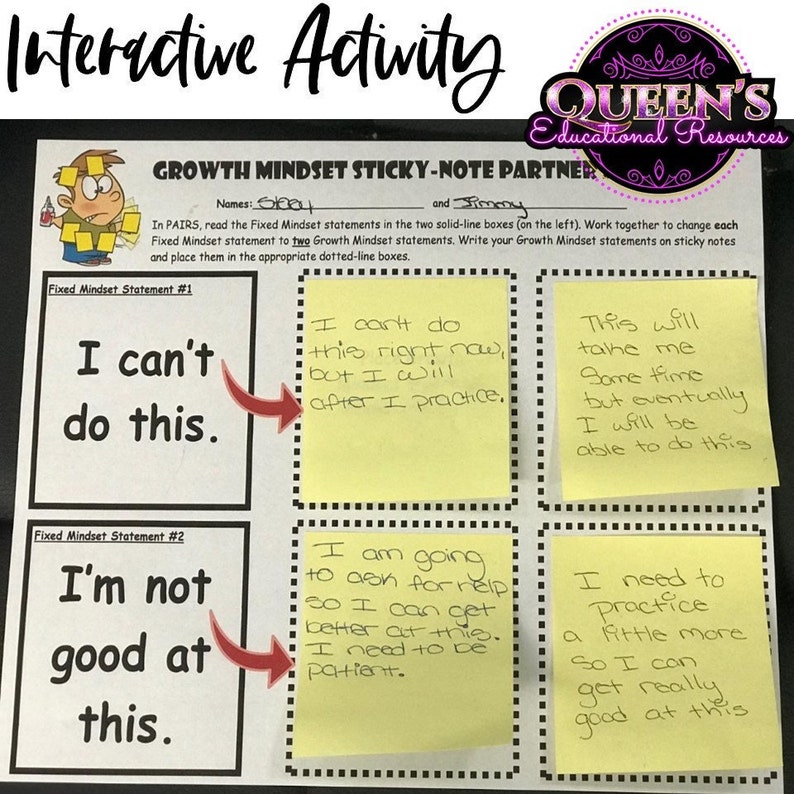 Interactive Activity
QUEEN'S
Educational Resources
GROWTH MINDSET STICKY-NOTE PARTNER
Names: and Jimmy
In PAIRS, read the Fixed Mindset statements in the two solid-line boxes (on the left). Work together to change each
Fixed Mindset statement to two Growth Mindset statements. Write your Growth Mindset statements on sticky notes
and place them in the appropriate dotted-line boxes.
Fixed Mindset Statement #1
I can't
do this.
I can't do
this right now,
but I will
after I practice.
This will
take me
some time
but eventually
I will be
able to do this
Fixed Mindset Statement #2
I'm not
good at
this.
I am going
to ask for help
so I can get
better at this.
I need to be
patient.
I need to
practice
a little more
so I can
get really
good at this